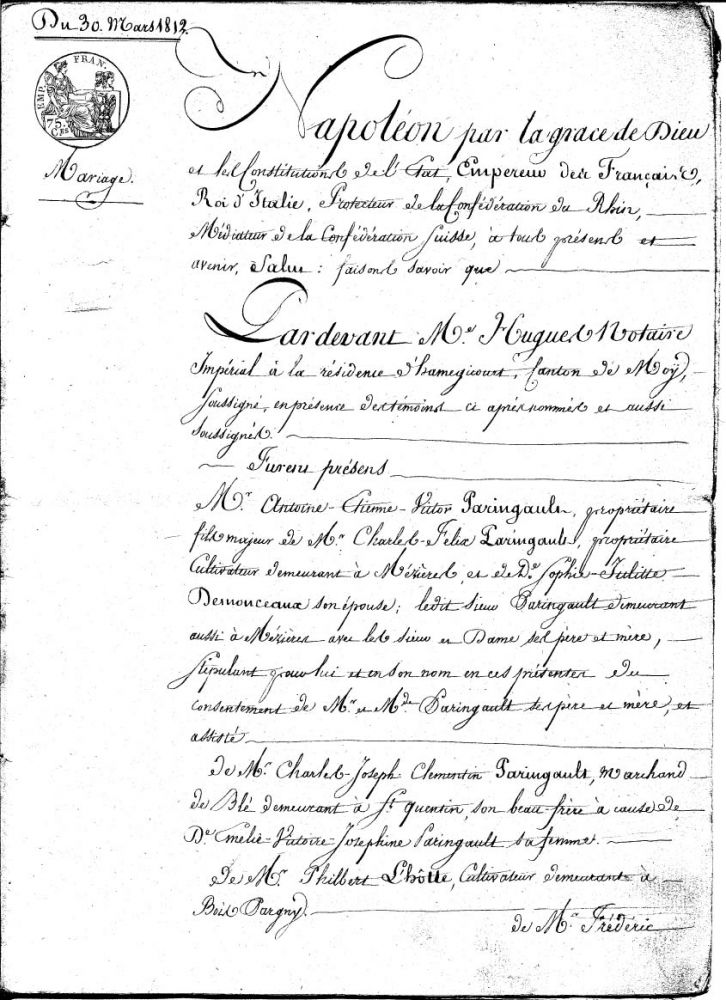 Du 30. Mars 1812.
EMP. FRAN.
75.
CES
Mariage.
Napoléon par la grace de Dieu
et les Constitutions de l'Etat, Empereur des Français,
Roi d'Italie, Protecteur de la Confédération du Rhin,
Médiateur de la Confédération Suisse, à tous présens et
avenir, Salut : faisons savoir que
Pardevant Me. Hugues Notaire
Impérial à la résidence d'hamegicourt, Canton de Moÿ,
Soussigné, en présence des témoins ci après nommés et aussi
soussignés.
Furent présens
Mr. Antoine-Etienne-Victor Paringault, propriétaire
fils majeur de Mr. Charles-Felix Paringault, propriétaire
Cultivateur demeurant à Mézières, et de De. Sophie-Julitte
Demonceaux son épouse ; ledit sieur Paringault demeurant
aussi à Mézières avec les sieur et Dame ses père et mère,
stipulant pour lui et en son nom en ces présentes du
consentement de Mr. et Mde. Paringault ses père et mère, et
assisté
de Mr. Charles-Joseph-Clementin Paringault, marchand
de Blé demeurant à St. quentin, son beau frère à cause de
De. Emélie-Victoire-Josephine Paringault sa femme.
de Mr. Philbert L'hôtte, Cultivateur demeurant à
Bois Pargny.
de Mr. Fréderic